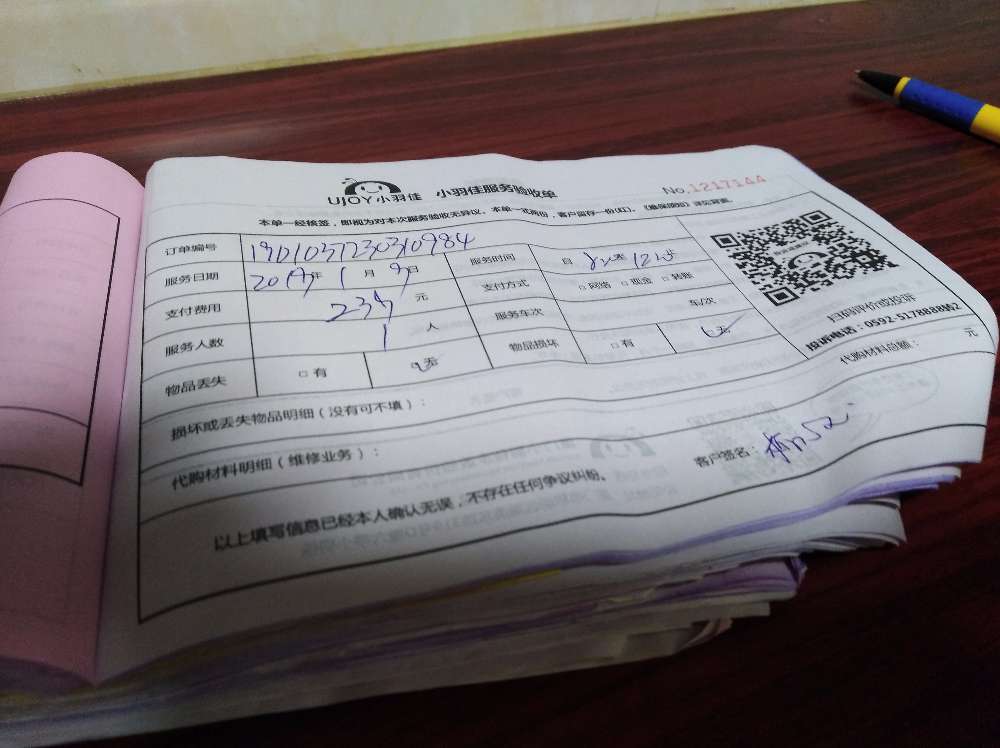 UJOY小羽佳 小羽佳服务验收单 No.1217144
本单一经核签，即视为对本次服务验收无异议。本单一式两份，客户留存一份(红)。
订单编号
服务日期 2019年1月9日 服务时间 自
支付费用 元 支付方式 □ 网络 □ 现金 □ 转账
服务人数 1 人 服务车次 车/次
物品丢失 □ 有 无 物品损坏 □ 有 无
扫码评价或投诉
投诉电话：0592-5178888
损坏或丢失物品明细（没有可不填）：
代购材料总额： 元
代购材料明细（维修业务）：
客户签名：
以上填写信息已经本人确认无误，不存在任何争议纠纷。